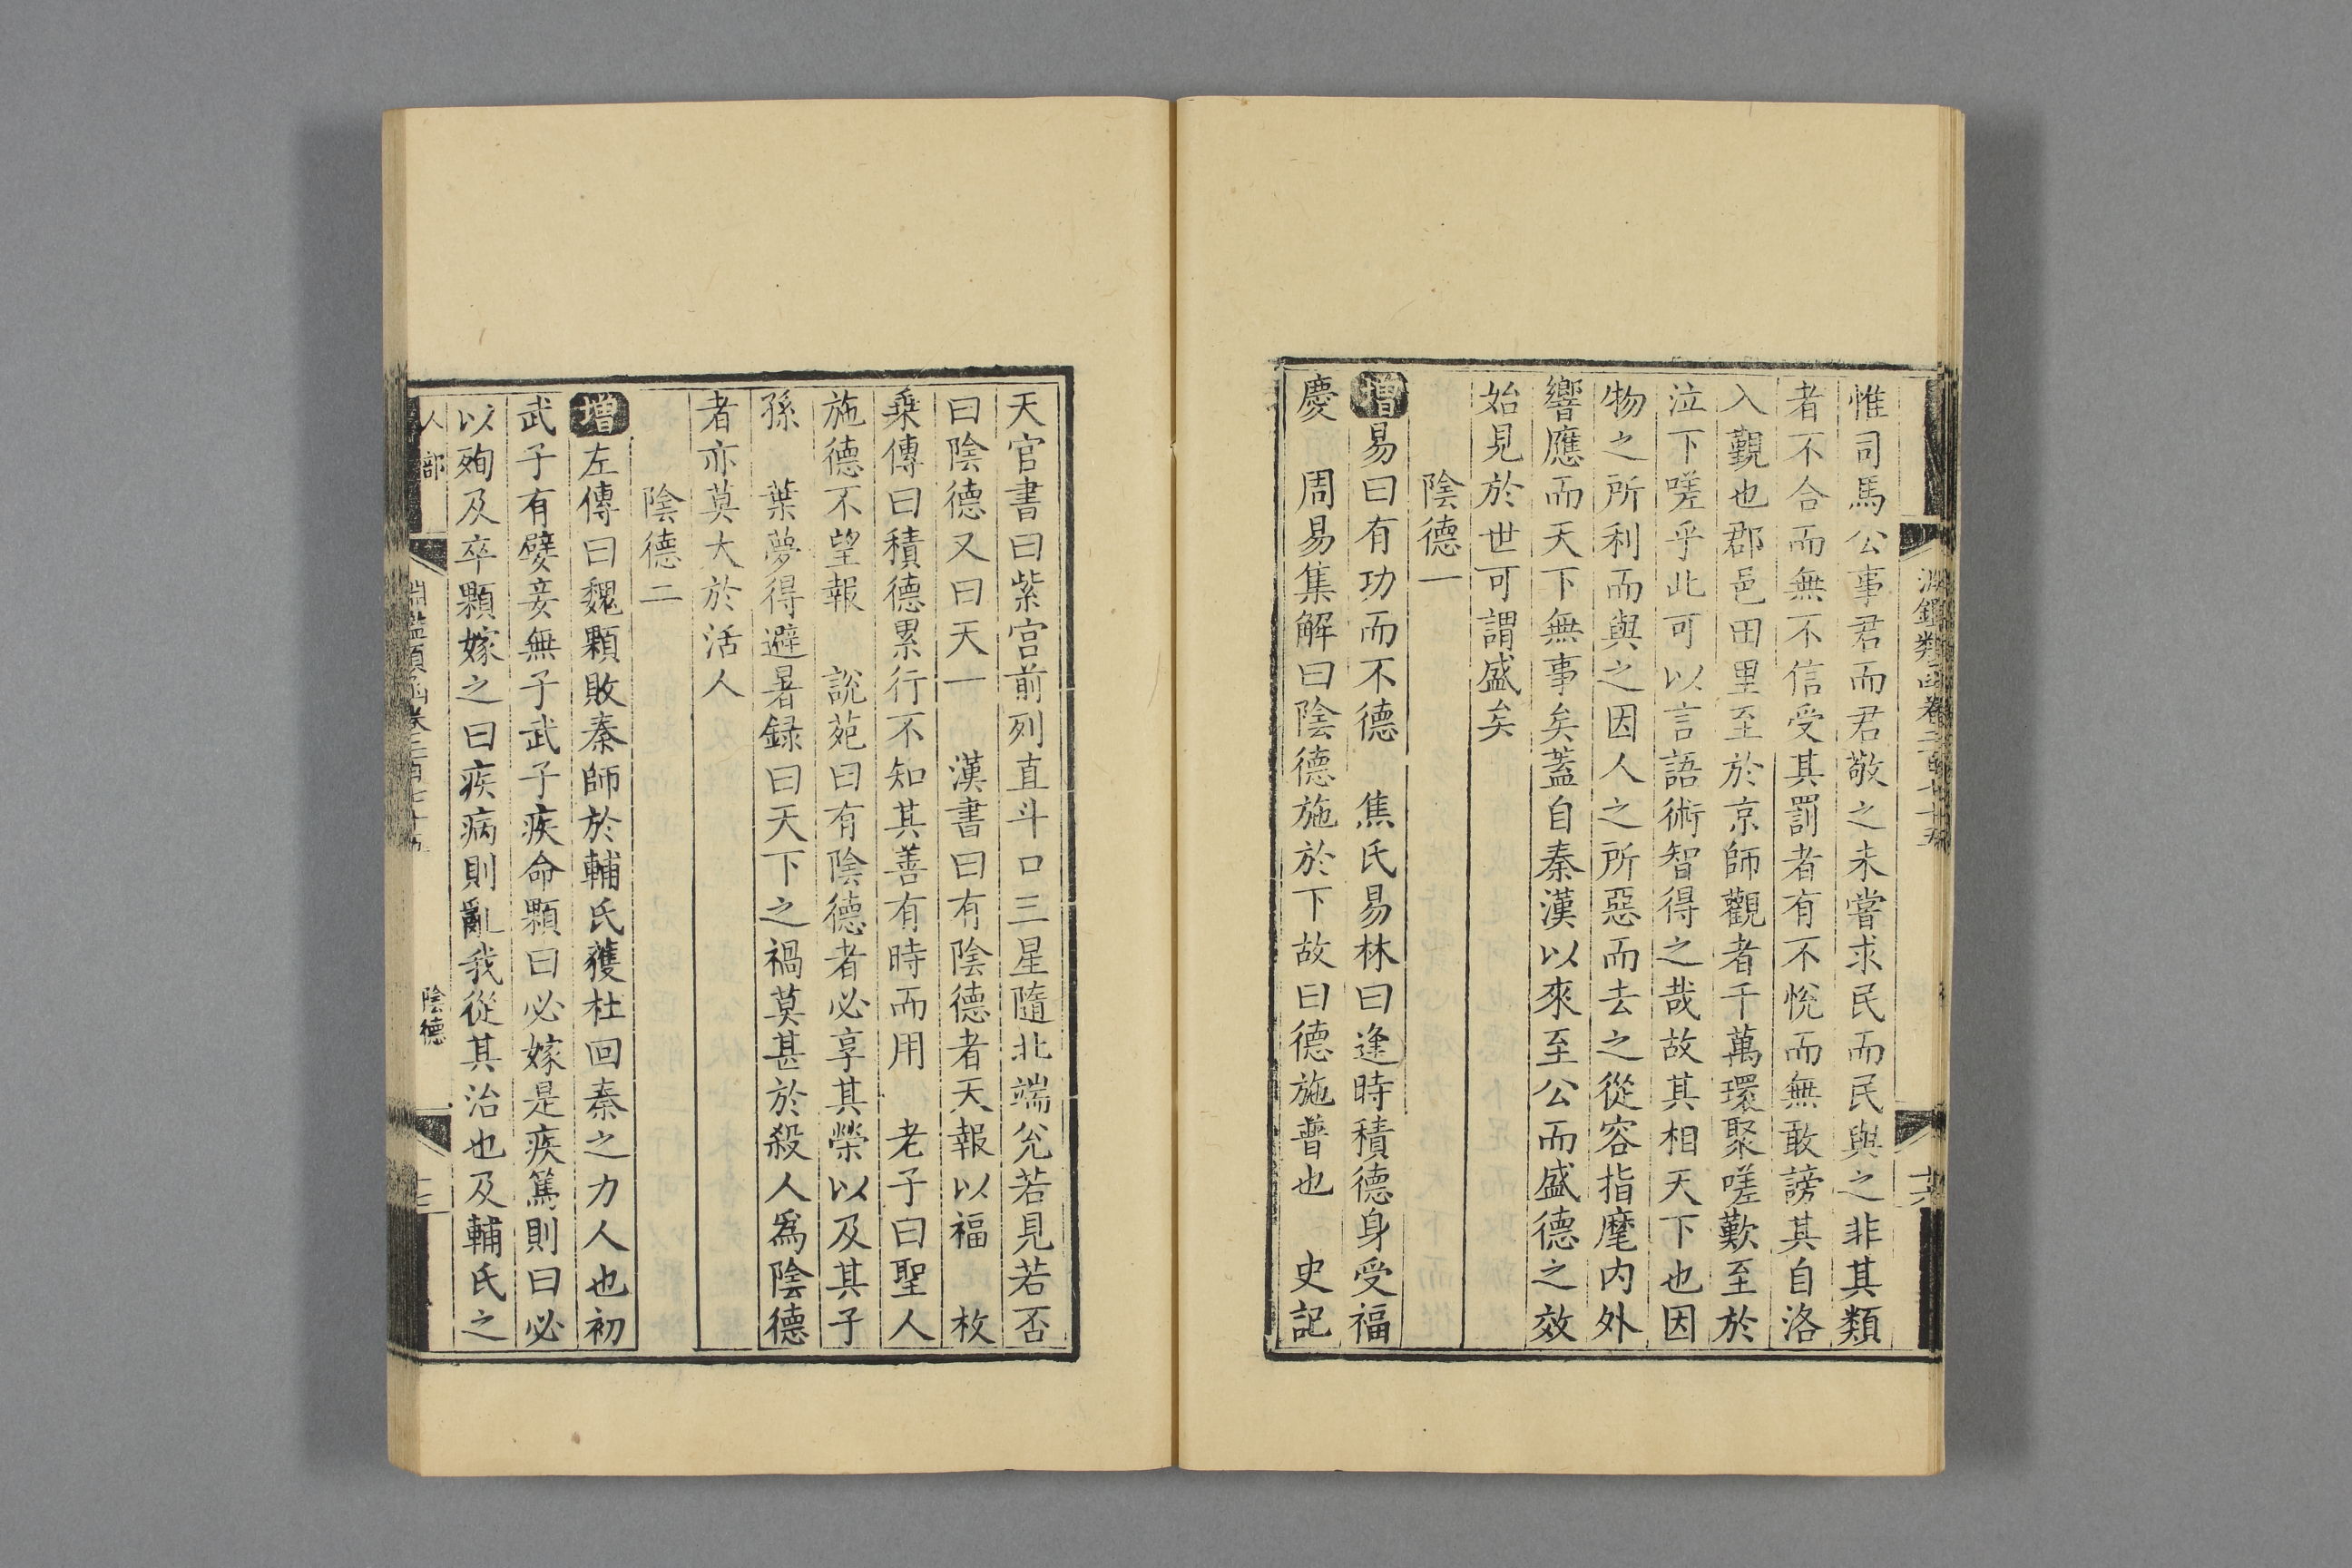 惟司馬公事君而君敬之未嘗求民而民與之非其類
者不合而無不信受其罰者有不悅而無敢謗其自洛
入覲也郡邑田里至於京師觀者千萬環聚嗟歎至於
泣下嗟乎此可以言語術智得之哉故其相天下也因
物之所利而與之因人之所惡而去之從容指麾内外
響應而天下無事矣蓋自秦漢以來至公而盛德之效
始見於世可謂盛矣
陰德一
增易曰有功而不德 焦氏易林曰逢時積德身受福
慶 周易集解曰陰德施於下故曰德施普也 史記
天官書曰紫宫前列直斗口三星隨北端兊若見若否
曰陰德又曰天一 漢書曰有陰德者天報以福 枚
乗傳曰積德累行不知其善有時而用 老子曰聖人
施德不望報 說苑曰有陰德者必享其榮以及其子
孫 葉夢得避暑録曰天下之禍莫甚於殺人爲陰德
者亦莫大於活人
陰德二
增左傳曰魏顆敗秦師於輔氏獲杜回秦之力人也初
武子有嬖妾無子武子疾命顆曰必嫁是疾篤則曰必
以殉及卒顆嫁之曰疾病則亂我從其治也及輔氏之
人部
陰德